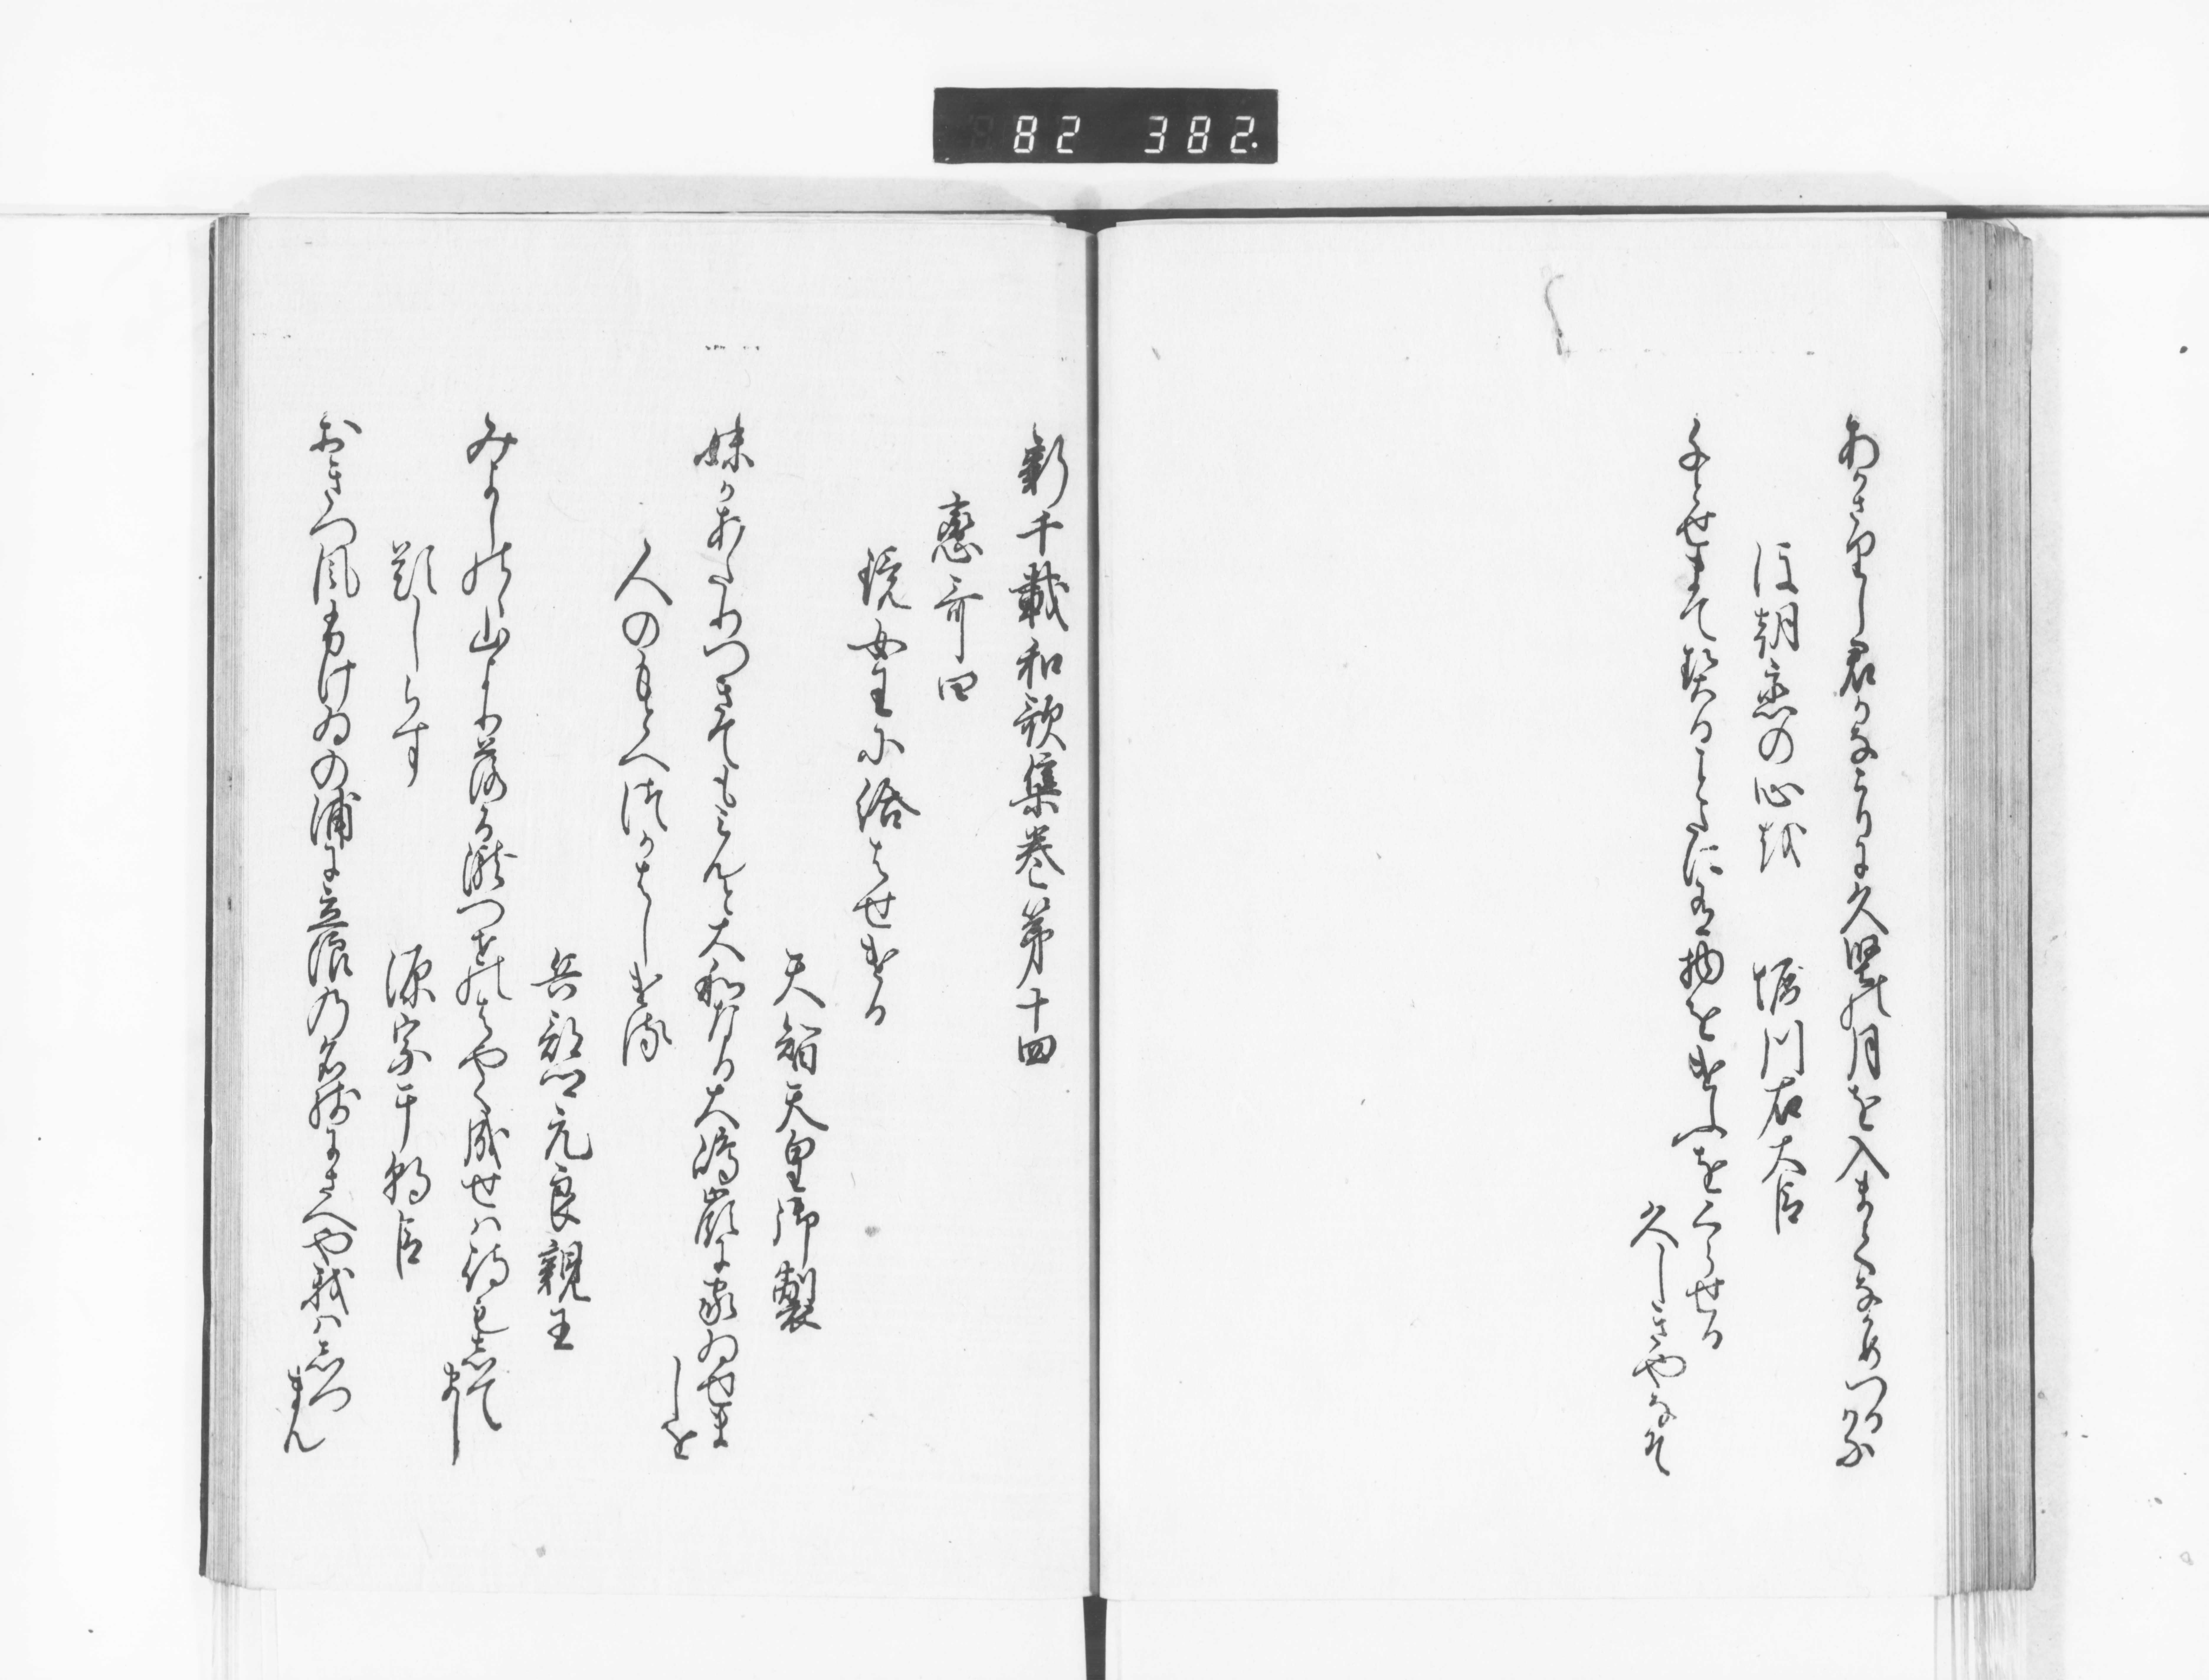 82 382.
あかさりし君かなこりに久堅の月を入まてなかめつる哉
後朝恋の心を 堀川右大臣
千とせまて契ることたに有物をけふをくらせる
久しきやなそ
新千載和歌集巻第十四
戀哥四
鏡女王に給はせける
天智天皇御製
妹かあたりつきてもみんと大和なる大嶋嶺に家ゐせま
しを
人のもとへつかはしける
兵部卿元良親王
みよしのゝ山より落る瀧つせのはやく成せは待もして
まし
題しらす 源宗于朝臣
おきつ風ふけゐの浦に立浪の名残にさへや我はしつ
まん